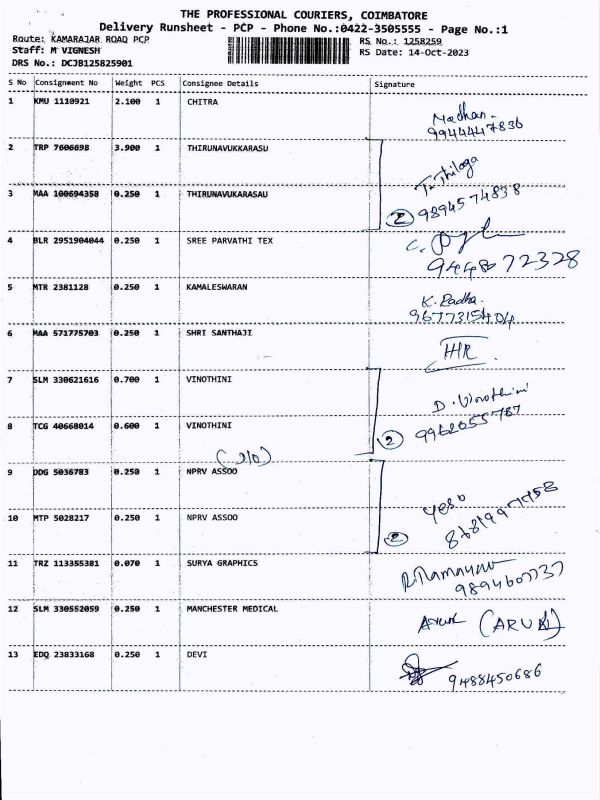 THE PROFESSIONAL COURIERS, COIMBATORE
Delivery Runsheet - PCP - Phone No.:0422-3505555 - Page No.:1
Route: KAMARAJAR ROAD PCP RS No.: 1258259
Staff: M VIGNESH RS Date: 14-Oct-2023
DRS No.: DCJB125825901
S No Consignment No Weight PCS Consignee Details Signature
1 KMU 1110921 2.100 1 CHITRA Madhan.
9944447836
2 TRP 7606698 3.900 1 THIRUNAVUKKARASU T. Thilaga
3 MAA 100694358 0.250 1 THIRUNAVUKARASAU 2 9894574838
4 BLR 2951904044 0.250 1 SREE PARVATHI TEX
9448072328
5 MTR 2381128 0.250 1 KAMALESWARAN K. Radha.
9677315404
6 MAA 571775703 0.250 1 SHRI SANTHAJI
7 SLM 330621616 0.700 1 VINOTHINI D. Vinothini
8 TCG 40668014 0.600 1 VINOTHINI 2 9962055787
9 DDG 5036783 0.250 1 NPRV ASSOO
10 MTP 5028217 0.250 1 NPRV ASSOO 2
11 TRZ 113355381 0.070 1 SURYA GRAPHICS
12 SLM 330552059 0.250 1 MANCHESTER MEDICAL Arun (ARUN)
13 EDQ 23833168 0.250 1 DEVI 9488450686